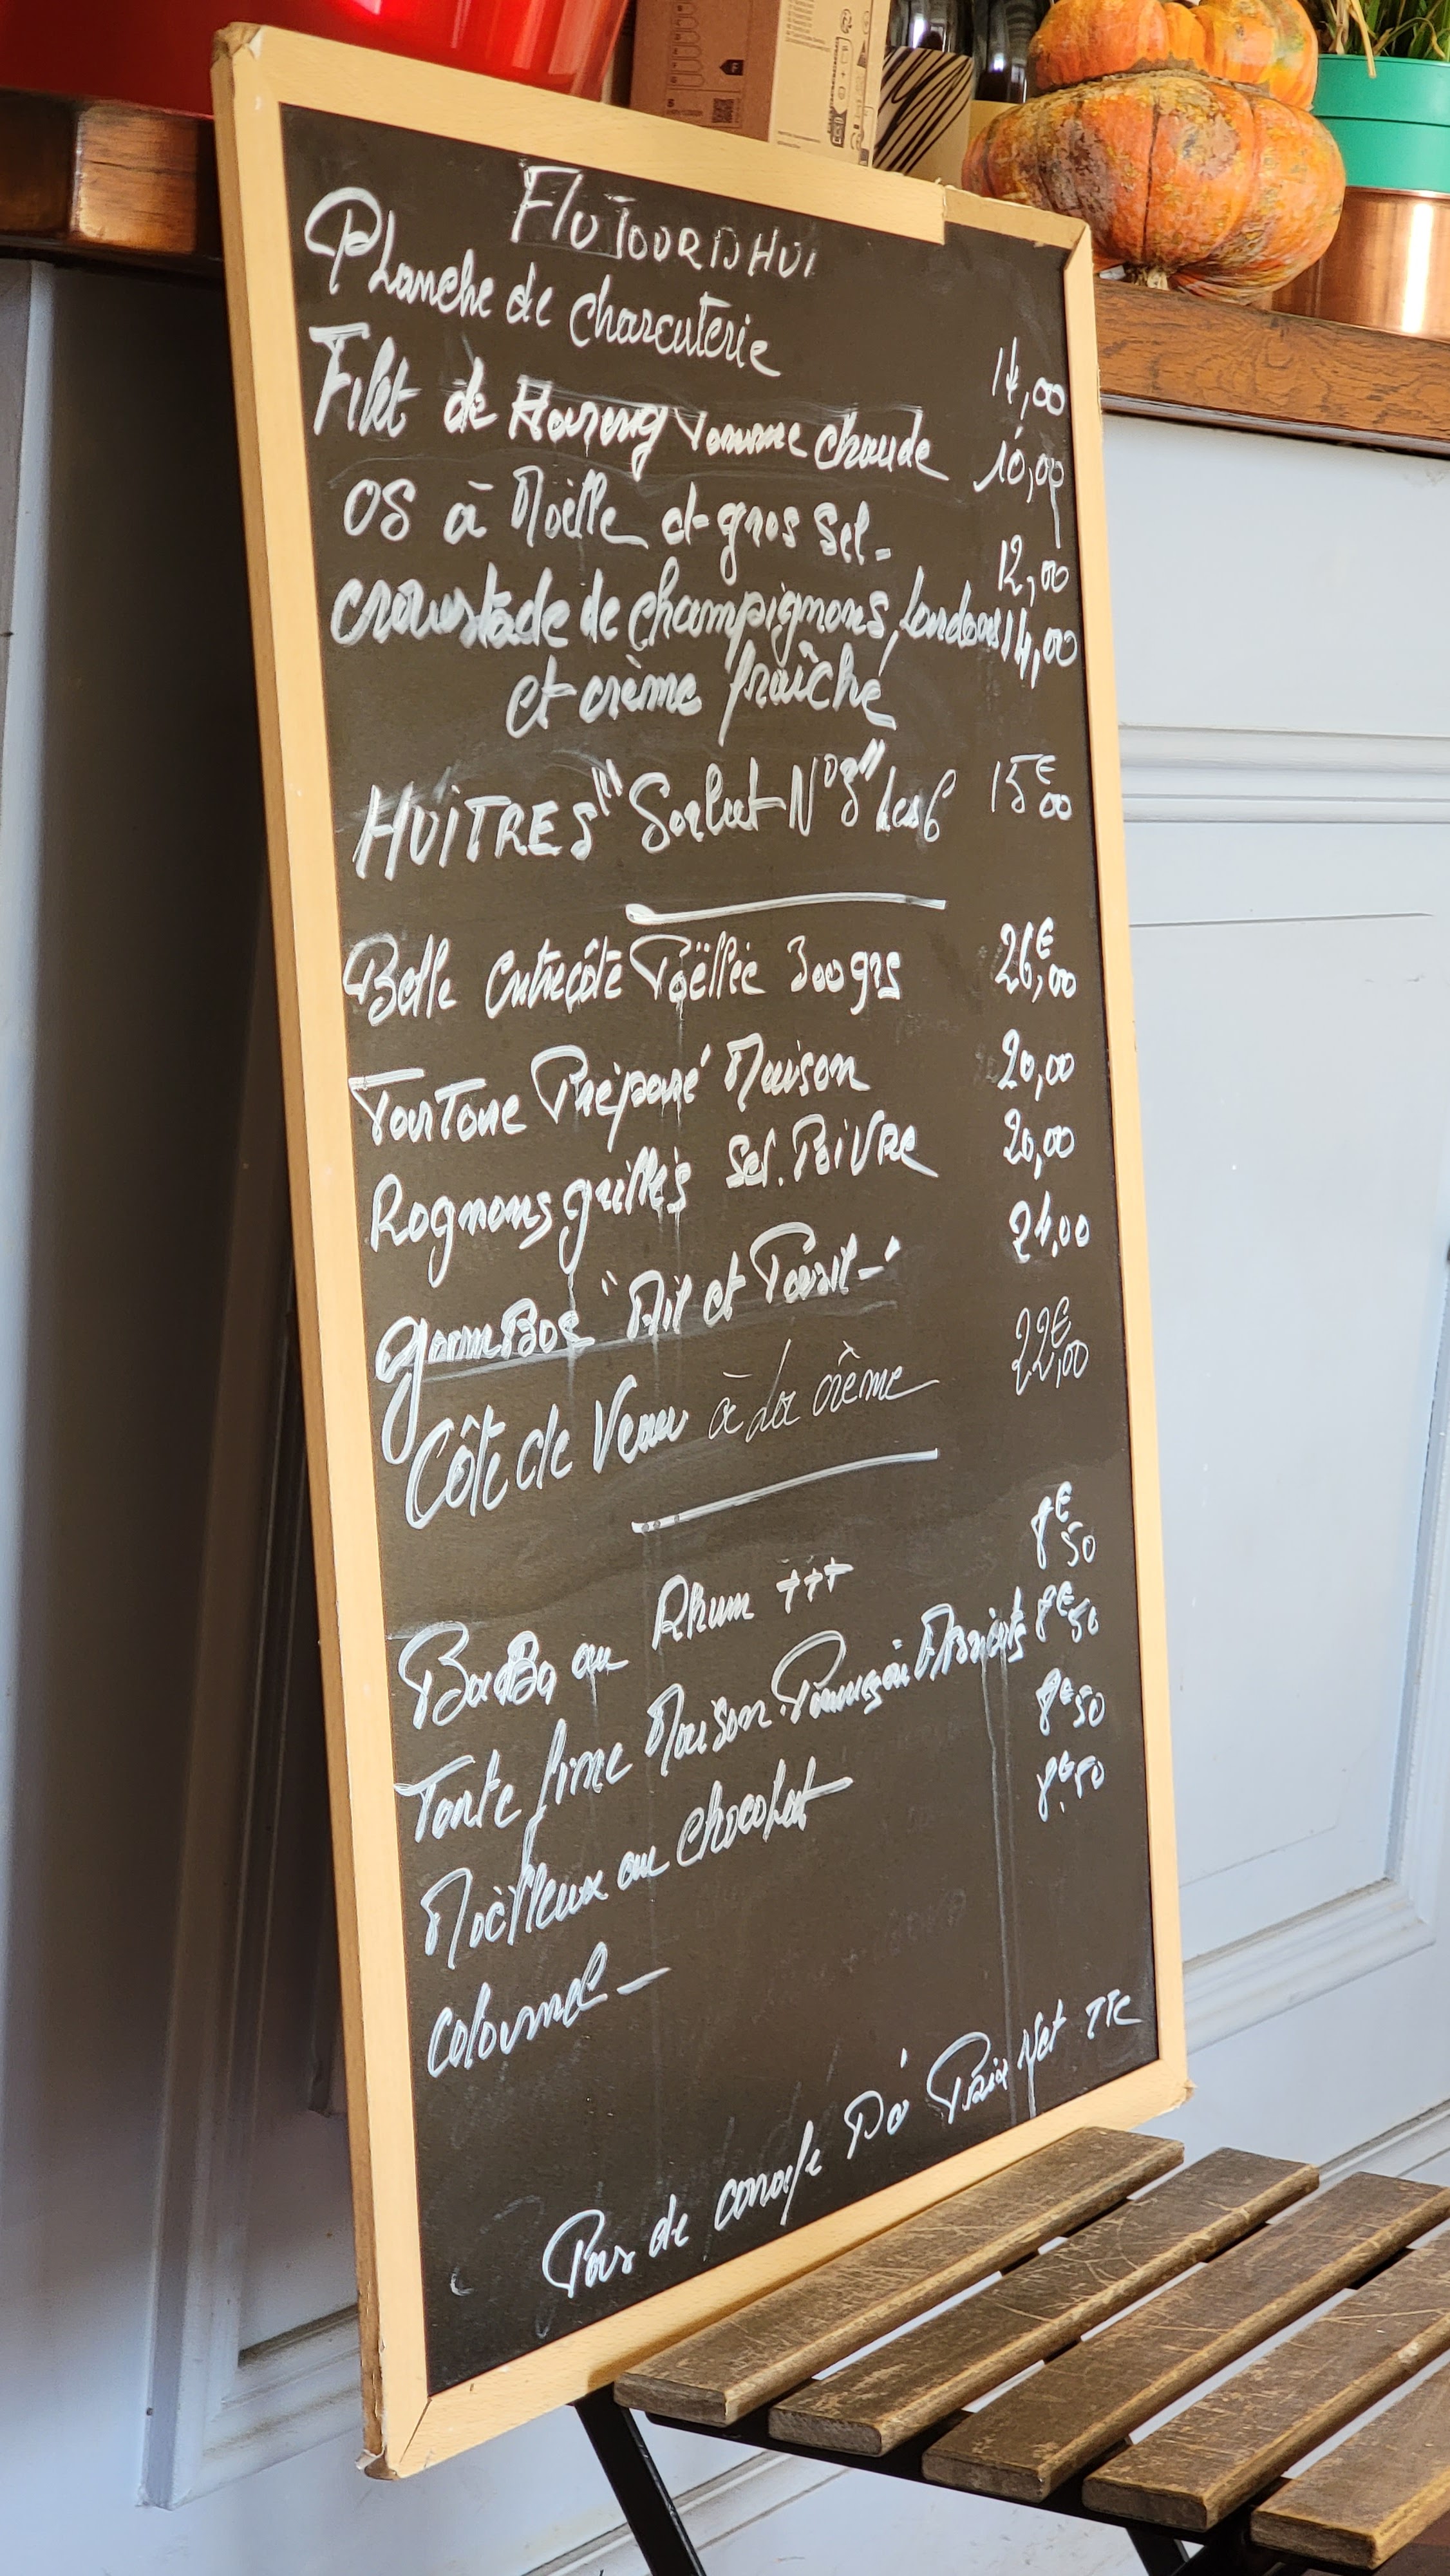 AUJOURD'HUI
Planche de charcuterie 14,00
Filet de Hareng pomme chaude 10,00
OS à Moëlle et gros sel. 12,00
croustade de champignons, lardons 14,00
et crème fraîche
HUÎTRES "Sorlut N°3" les 6 15€00
Belle entrecôte Poëllée 300grs 26€,00
TarTare Préparé Maison 20,00
Rognons grillés Sel. Poivre 20,00
gamBas "Ail et Persil" 24,00
Côte de Veau à la crème 22€,00
BaBa au Rhum +++ 8€50
Tarte fine Maison. Abricots 8€50
Moëlleux au chocolat 8€50
colonnel — 8€50
Pas de carafe D'ô Prix Net TTC